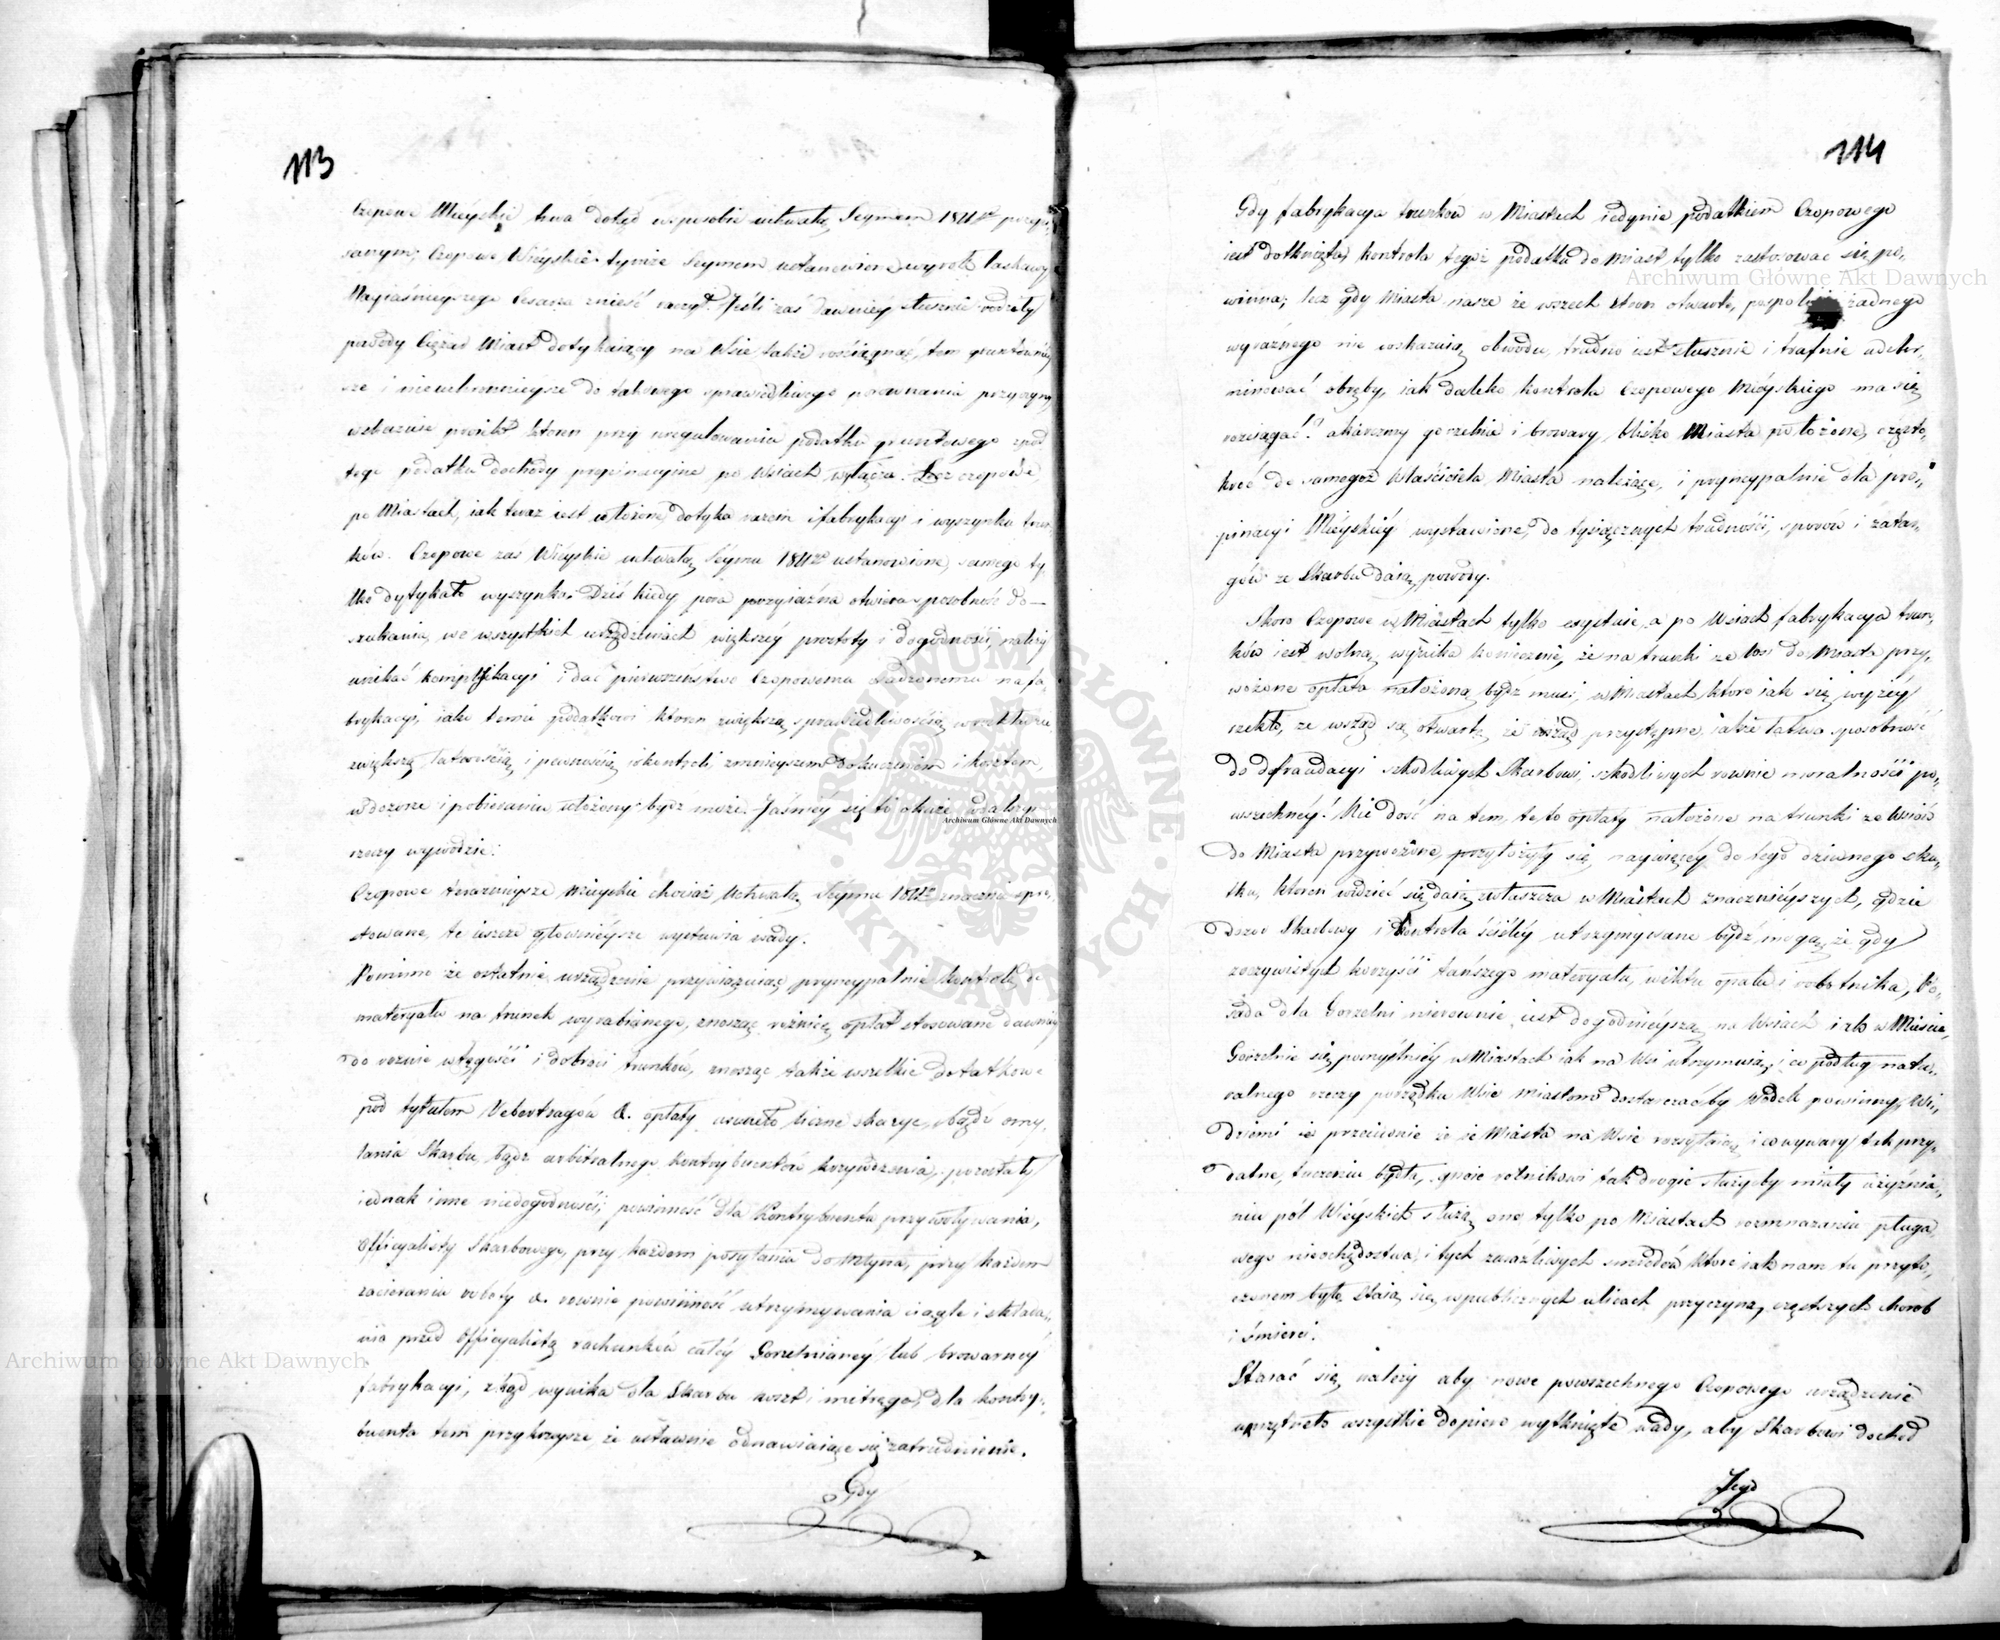 113
Czopowe Mieyskie trwa dotąd w sposobie uchwałą Seymem 1811go przepi-
sanym; Czopowe Wieyskie tymże Seymem ustanowione wyrok łaskawy
Nayiaśnieyszego Cesarza znieść raczył. Jeśli zaś dawniey słusznie radziły
powody Ciężar Miast dotykaiący na Wsie także rozciągnąć, tem gruntowniey-
sze i do takowego sprawiedliwego porownania przyczyny
wskazuie przy uregulowaniu podatku gruntowego z pod
tego podatku dochody propinacyjne po Wsiach wyłącza. Lecz czopowe
po Miastach, iak teraz iest ułożone, dotyka razem i fabrykacyi i wyszynku trun-
ków. Czopowe zaś Wieyskie uchwałą Seymu 1811go ustanowione, samego ty-
lko dotykało wyszynku. Dziś kiedy pora przyiaźna otwiera sposobność do-
szukania, we wszystkich urządzeniach większey prostoty i dogodności, należy
unikać komplikacyi i dać pierwszeństwo Czopowemu na fa-
brykacyi, iako temu podatkowi ktoren z większą sprawiedliwością w rozkładzie
z większą łatwością i pewnością w kontroli, zmnieyszem dokuczeniem i kosztem,
w dozorze i pobieraniu ułożony bydź może. Jaśniey się to okaże z dalszego
rzeczy wywodzie:
Czopowe teraznieysze mieyskie chociaż Uchwałą Seymu 1811go znacznie spro-
stowane, te ieszcze głownieysze wystawia wady.
Pomimo że ostatnie urządzenie przywiązuiąc pryncypalnie Kontrolę do
materyału na trunek wyrabianego, znosząc różnicę opłat stosowane dawniey
do roznie tęgości i dobroci trunków, znosząc także wszelkie dodatkowe
pod tytułem Uebertragów &. opłaty usuneło liczne skargi, bądź omy-
lania Skarbu, bądź arbitralnego kontrybuentów krzywdzenia, pozostały
iednak inne niedogodności, powinność dla Kontrybuenta przywoływania,
Officyalisty Skarbowego, przy każdem posyłaniu do Młyna, przy każdem
zacieraniu roboty &. rownie powinność utrzymywania ciągłe i składa-
nia przed Officyalistą rachunków całey Gorzelnianey lub browarney
fabrykacyi, z kąd wynika dla Skarbu koszt i mitręga, dla kontry-
buenta tem przykrzysze, że ustawnie odnawiaiące się zatrudnienie.
Gdy
114
Gdy fabrykacya trunków w Miastach iedynie podatkiem Czopowego
iest dotknięta, kontrola tegoż podatku do miast tylko zastosować się po-
winna; lecz gdy Miasta nasze ze wszech stron otwarte, żadnego
wyraźnego nie wskazuią obwodu, trudno iest słusznie i trafnie
obręby, iak daleko kontrola Czopowego Mieyskiego ma się
rozciągać? a karczmy gorzelnia i browary, blisko Miasta położone, często-
kroć do samegoż Właściciela Miasta należące, i pryncypalnie dla pro-
pinacyi Mieyskiey wystawione, do tysiącznych trudności, sporów i zatar-
gów ze Skarbu daią powody.
Skoro Czopowe w Miastach tylko exystuie, a po Wsiach fabrykacya trun-
ków iest wolną, wynika koniecznie, że na trunki ze Wsi do Miasta przy-
wożone opłata nałożoną bydź musi, w Miastach, ktore iak się wyżey
rzekło, ze wsząd są otwarte, ze wsząd przystępne, iakże łatwa sposobność
do defraudacyi szkodliwych Skarbowi, szkodliwych rownie moralności po-
wszechney! Nie dość na tem, te to opłaty nałożone na trunki ze Wsiów
do Miasta przywożone, przyłożyły się naywięcey do tego dziwnego sku-
tku, ktoren widzieć się daią zwłaszcza w Miastach znacznieyszych, gdzie
Dozor Skarbowy i Kontrola ściśley utrzymywane bydź mogą, że gdy
rzeczywistych korzyści tańszego materyału, wiktu opału i robotnika, Po-
sada dla Gorzelni nierownie iest dogodnieyszą na Wsiach i iak w Mieście
Gorzelnie się pomyślniey w Miastach iak na Wsi utrzymuią, i co podług natu-
ralnego rzeczy porządku Wsie Miastom dostarczać by Wodek powinny, Wi-
dziemi ie przeciwnie że ie Miasta na Wsie rozsyłaią, i co wywary tak przy-
datne, tuczeniu bydła, gnoie rolnikowi tak drogie służyby miały użyźnia-
niu pól Wieyskich służą one tylko po Miastach rozmnażaniu pluga-
wego nieochędostwa, i tych zaraźliwych smrodów ktore iak nam tu przyto-
czonem było, staią się w publicznych ulicach, przyczyną częstszych chorob
i śmierci.
Starać się należy aby nowe powszechnego Czopowego urządzenie
uprzątneło wszystkie dopiero wytknięte wady, aby Skarbowi dochod
Jego
Archiwum Główne Akt Dawnych